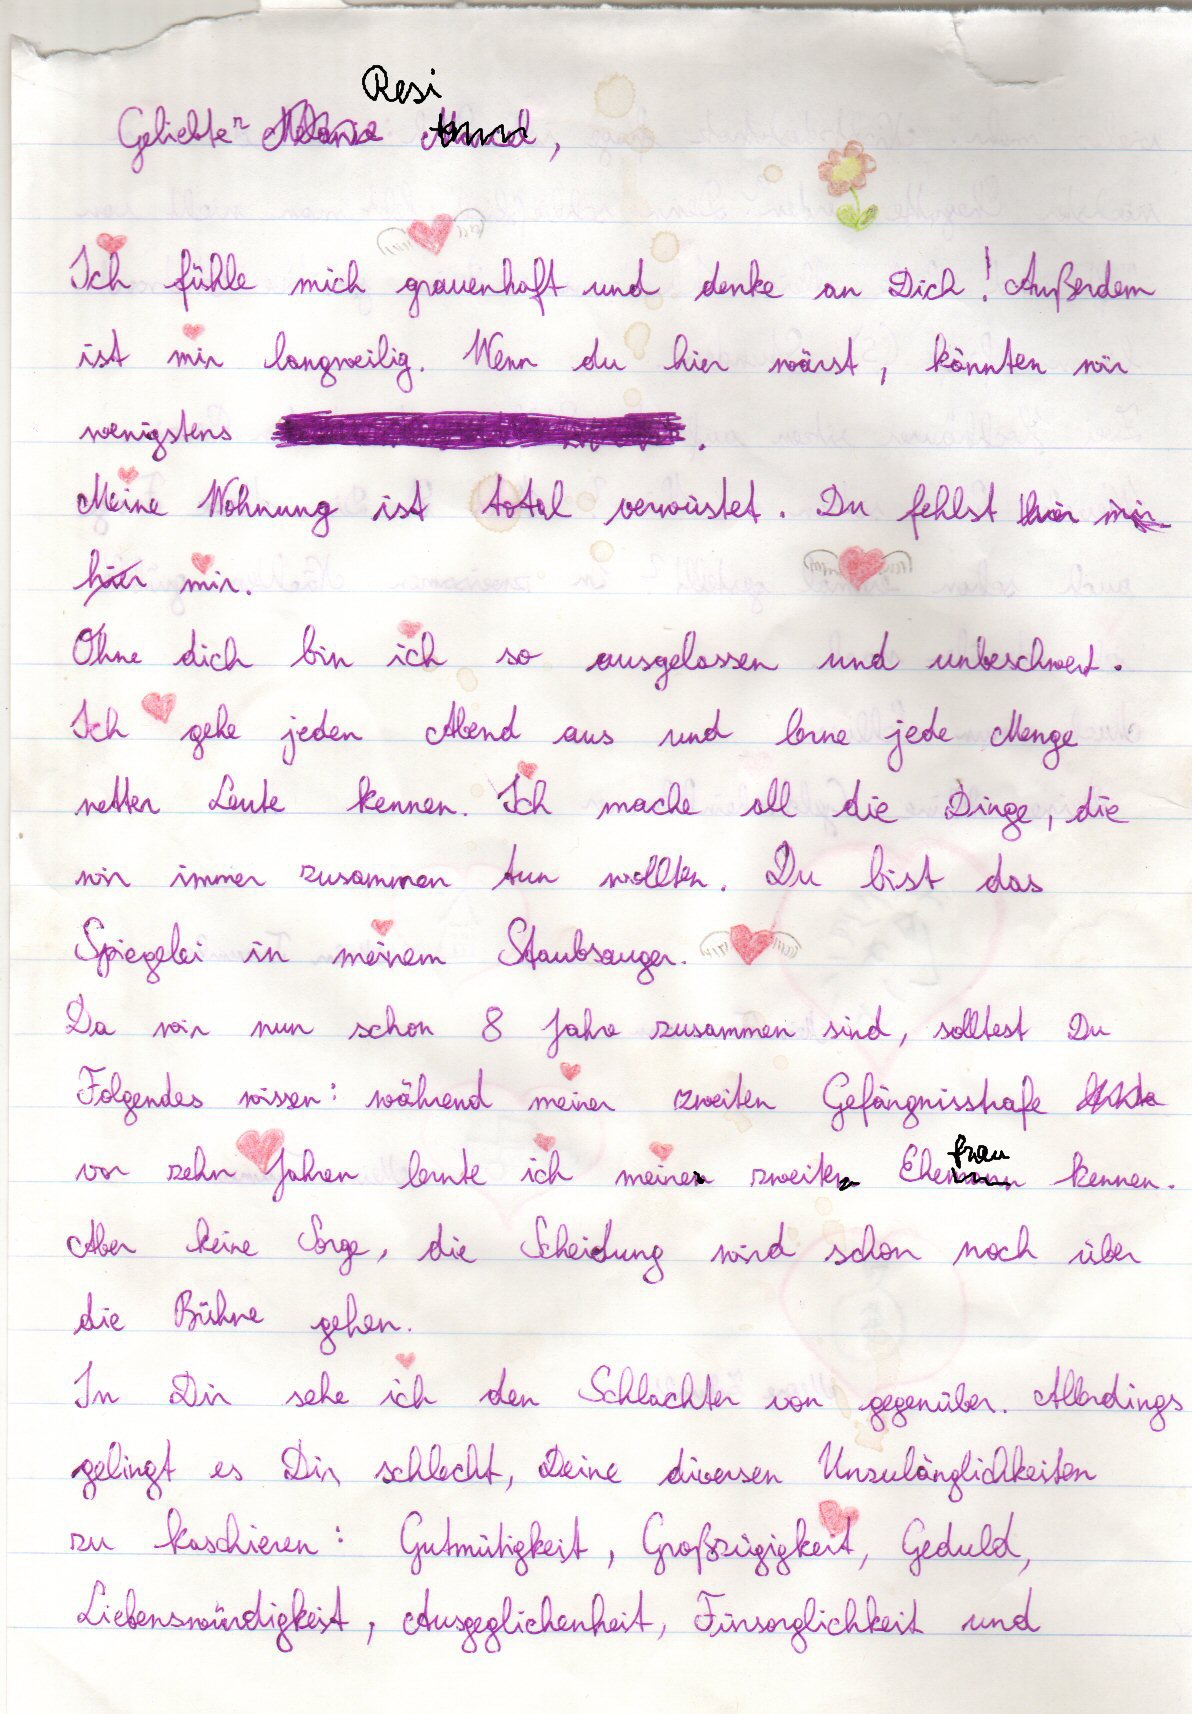 Resi
Geliebter Melanie,
Ich fühle mich grauenhaft und denke an Dich! Außerdem
ist mir langweilig. Wenn du hier wärst, könnten wir
wenigstens .
Meine Wohnung ist total verwüstet. Du fehlst hier mir
hier mir.
Ohne dich bin ich so ausgelassen und unbeschwert.
Ich gehe jeden Abend aus und lerne jede Menge
netter Leute kennen. Ich mache all die Dinge, die
wir immer zusammen tun wollten. Du bist das
Spiegelei in meinem Staubsauger.
Da wir nun schon 8 Jahre zusammen sind, solltest Du
Folgendes wissen: während meiner zweiten Gefängnisstrafe
vor zehn Jahren lernte ich meine zweite Ehefrau kennen.
Aber keine Sorge, die Scheidung wird schon noch über
die Bühne gehen.
In Dir sehe ich den Schlachter von gegenüber. Allerdings
gelingt es Dir schlecht, Deine diversen Unzulänglichkeiten
zu kaschieren: Gutmütigkeit, Großzügigkeit, Geduld,
Liebenswürdigkeit, Ausgeglichenheit, Fürsorglichkeit und